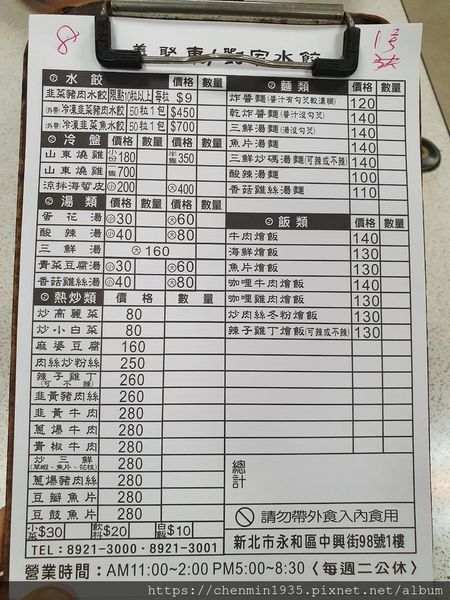 8
1号
義聚東 水餃
水餃 價格 數量
韭菜豬肉水餃 限點10粒以上 每粒 $9
(外帶)冷凍韭菜豬肉水餃 50粒1包 $450
(外帶)冷凍韭菜魚水餃 50粒1包 $700
冷盤 價格 數量 價格 數量
山東燒雞 小份180 半隻350
山東燒雞 700
涼拌海蜇皮 小200 大400
湯類 價格 數量 價格 數量
蛋花湯 小30 大60
酸辣湯 小40 大80
三鮮湯 大160
青菜豆腐湯 小30 大60
香菇雞絲湯 小40 大80
熱炒類 價格 數量
炒高麗菜 80
炒小白菜 80
麻婆豆腐 160
肉絲炒粉絲 250
辣子雞丁(可不辣) 260
韭黃豬肉絲 260
韭黃牛肉 280
蔥爆牛肉 280
青椒牛肉 280
炒三鮮(草蝦、魚片、花枝) 280
蔥爆豬肉絲 280
豆瓣魚片 280
豆鼓魚片 280
小菜$30 飲料$20 白飯$10
TEL：8921-3000、8921-3001
麵類 價格 數量
炸醬麵(醬汁有勾芡較濃稠) 120
乾炸醬麵(醬汁沒勾芡) 140
三鮮湯麵(湯沒勾芡) 140
魚片湯麵 140
三鮮炒碼湯麵(可辣或不辣) 140
酸辣湯麵 100
香菇雞絲湯麵 110
飯類 價格 數量
牛肉燴飯 140
海鮮燴飯 130
魚片燴飯 130
咖哩牛肉燴飯 140
咖哩雞肉燴飯 130
炒肉絲冬粉燴飯 130
辣子雞丁燴飯(可辣或不辣) 130
總計
請勿帶外食入內食用
新北市永和區中興街98號1樓
營業時間：AM11:00~2:00 PM5:00~8:30〈每週二公休〉
https://chenmin1935.pixnet.net/album